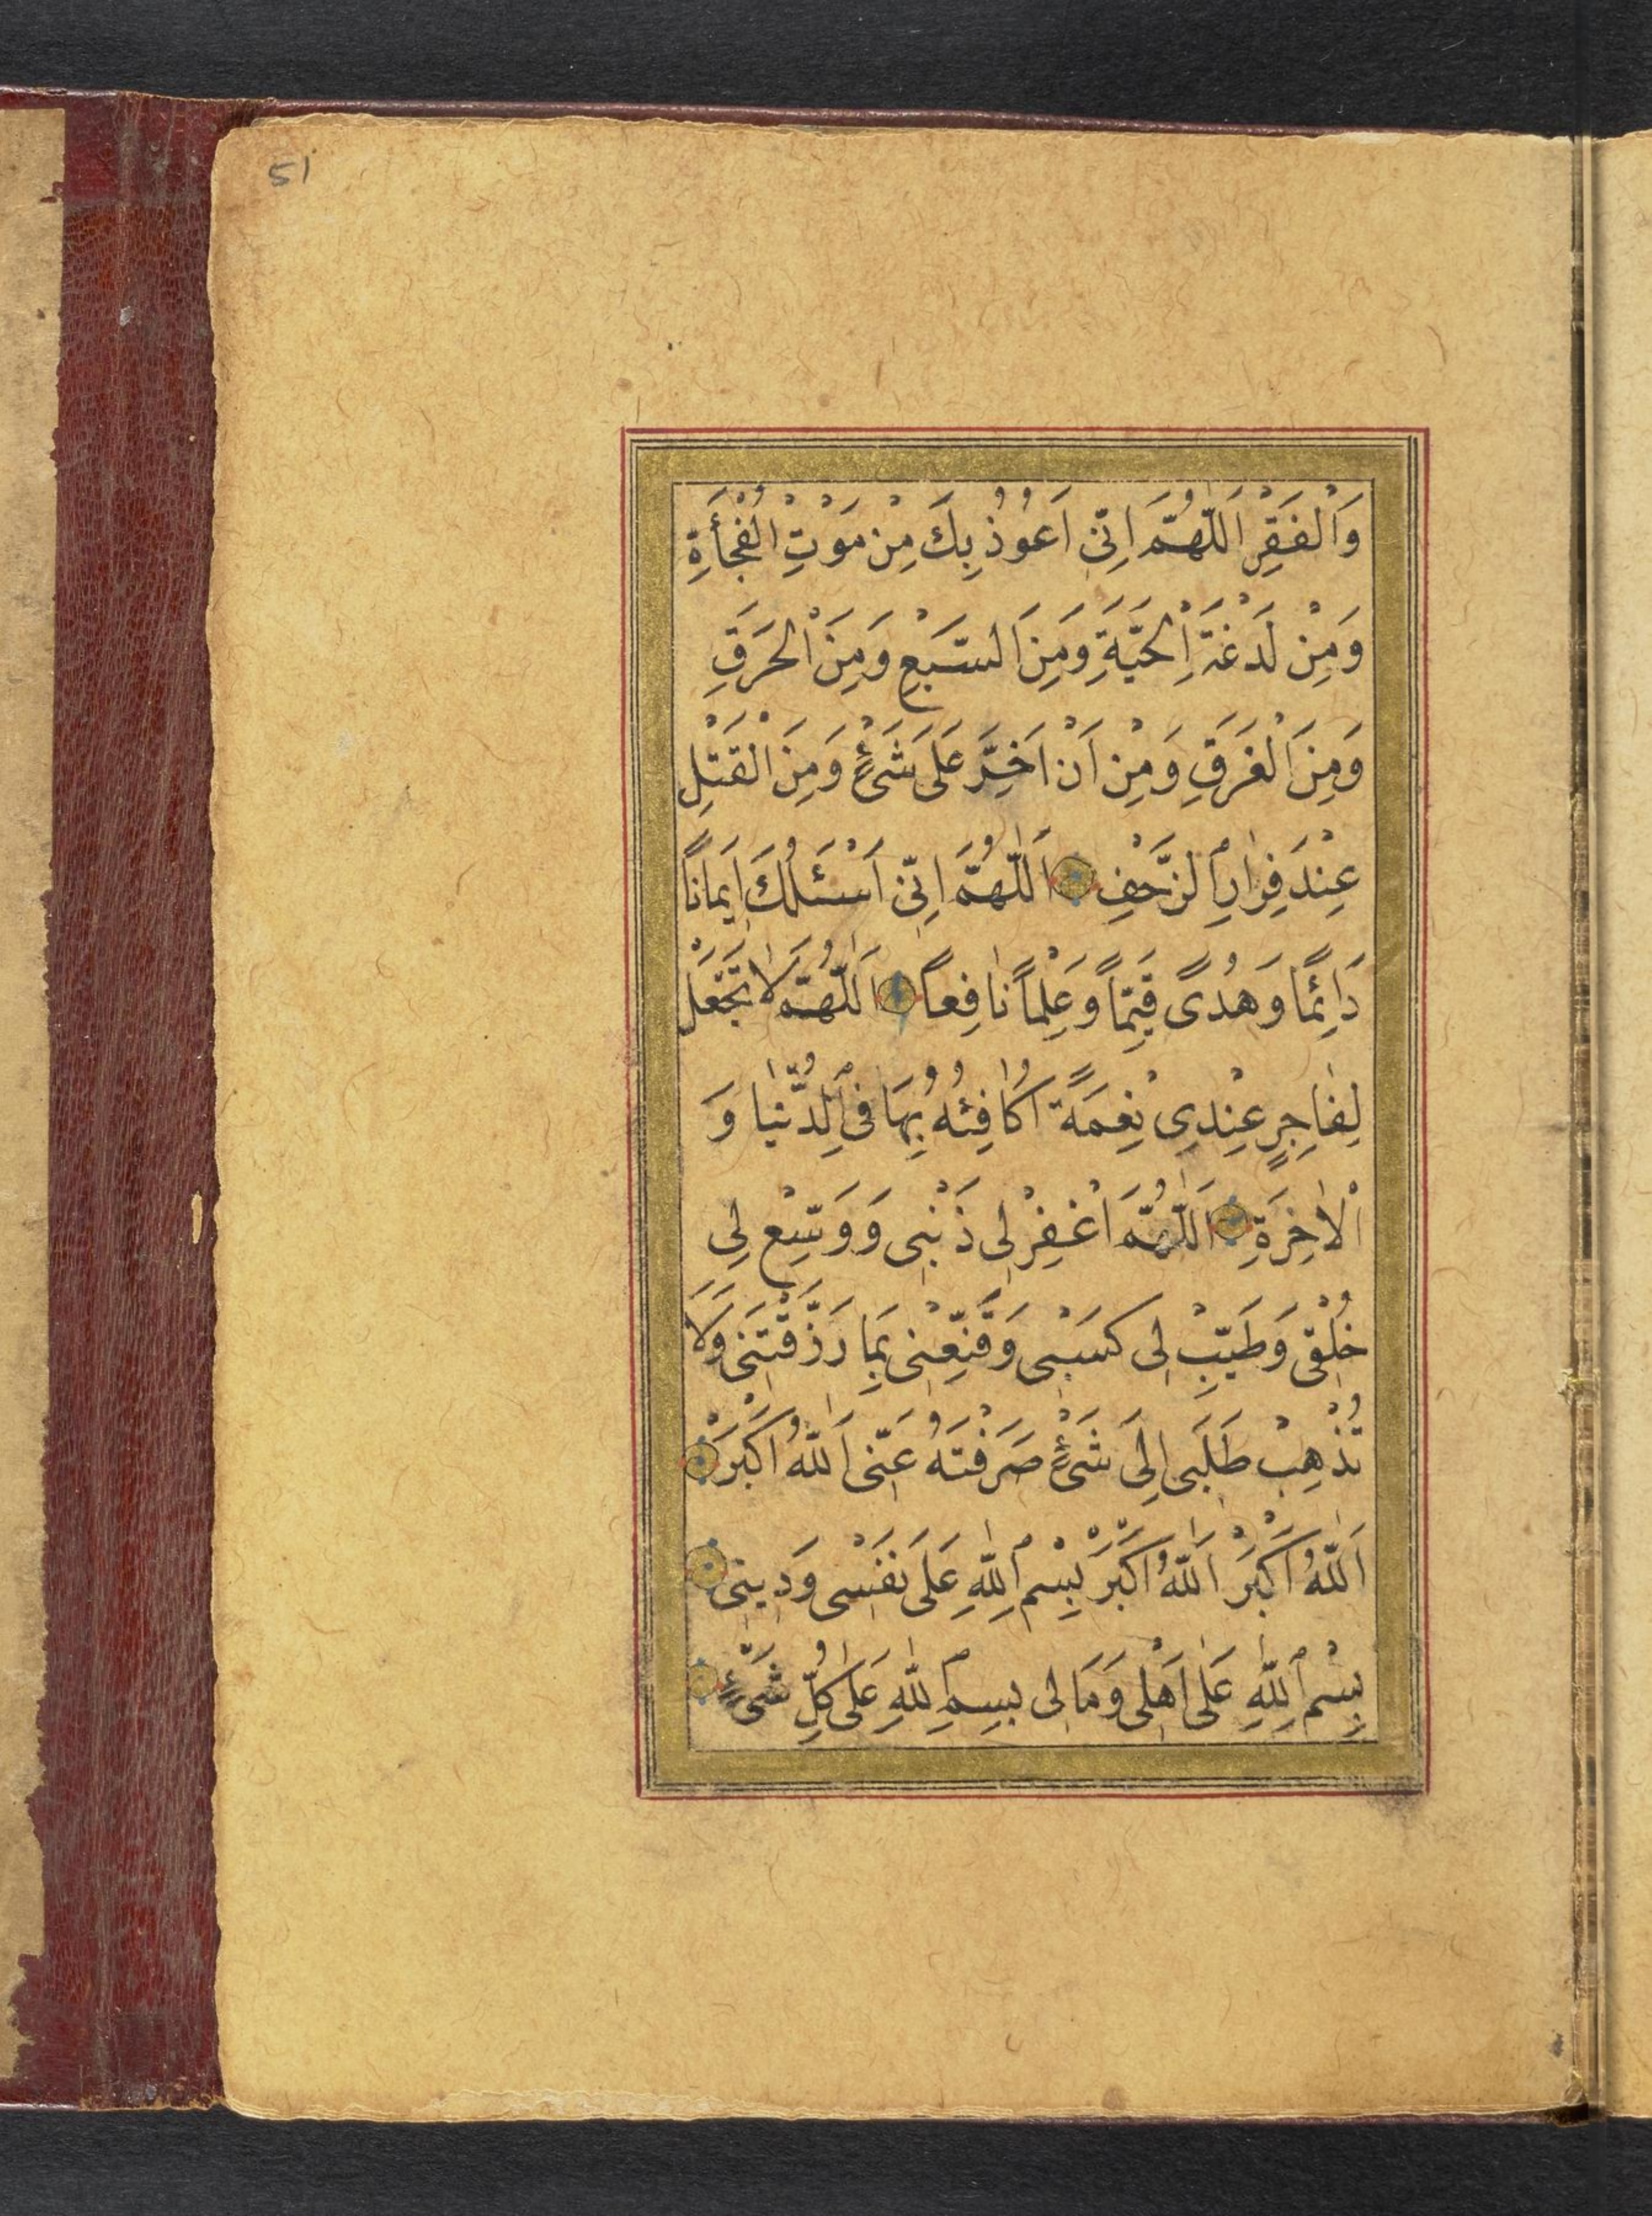 51
وَالْفَقْرِ اَللّٰهُمَّ اِنّٖى اَعُوْذُ بِكَ مِنْ مَوْتِ الْفُجْأَةِ
وَمِنْ لَدْغَةِ الْحَيَّةِ وَمِنَ السَّبُعِ وَمِنَ الْحَرَقِ
وَمِنَ الْغَرَقِ وَمِنْ اَنْ اَخِرَّ عَلَى شَىْءٍ وَمِنَ الْقَتْلِ
عِنْدَ فِرَارِ الزَّحْفِ اَللّٰهُمَّ اِنّٖى اَسْئَلُكَ اِيمَانًا
دَائِمًا وَهُدًى قَيِّمًا وَعِلْمًا نَافِعًا اَللّٰهُمَّ لَا تَجْعَلْ
لِفَاجِرٍ عِنْدِى نِعْمَةً اُكَافِئُهُ بِهَا فِى الدُّنْيَا وَ
الْاٰخِرَةِ اَللّٰهُمَّ اغْفِرْ لِى ذَنْبِى وَوَسِّعْ لِى
خُلُقِى وَطَيِّبْ لِى كَسْبِى وَقَنِّعْنِى بِمَا رَزَقْتَنِى وَلَا
تُذْهِبْ طَلَبِى اِلَى شَىْءٍ صَرَفْتَهُ عَنِّى اَللّٰهُ اَكْبَرُ
اَللّٰهُ اَكْبَرُ اَللّٰهُ اَكْبَرُ بِسْمِ اللّٰهِ عَلَى نَفْسِى وَدِينِى
بِسْمِ اللّٰهِ عَلَى اَهْلِى وَمَالِى بِسْمِ اللّٰهِ عَلَى كُلِّ شَىْءٍ